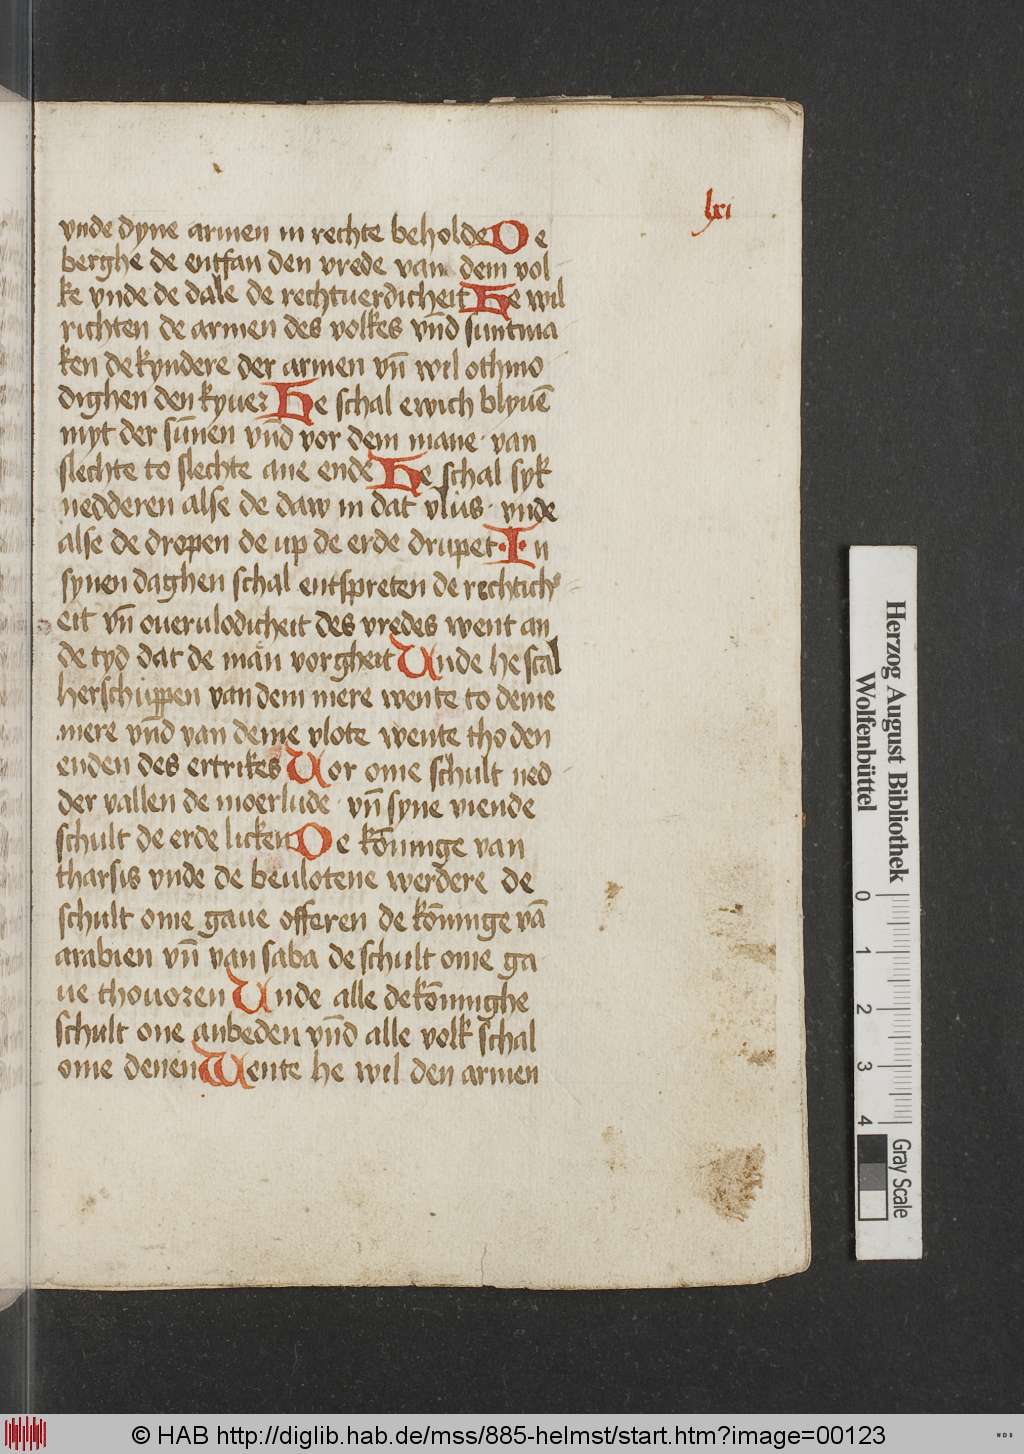 lxi
vnde dyne armen in rechte beholde De
berghe de entfan den vrede van dem vol
ke vnde de dale de rechtuerdicheit He wil
richten de armen des volkes vn̄d sunt ma
ken de kyndere der armen vn̄ wil othmo
dighen den kyuer He schal ewich blyuē
myt der sūnen vn̄d vor dem mane · van
slechte to slechte ane ende He schal syk
nedderen alse de daw in dat vlus · vnde
alse de dropen de up de erde drupet · In
synen daghen schal entspreten de rechtich
eit vn̄ ouerulodicheit des vredes went an
de tyd dat de mān vorgheit Unde he scal
herschuppen van dem mere wente to deme
mere vn̄d van deme vlote wente tho den
enden des ertrikes Vor ome schult ned
der vallen de moerlude · vn̄ syne viende
schult de erde licken De kōninge van
tharsis vnde de beulotene werdere de
schult ome gaue offeren de kōninge vā
arabien vn̄ van saba de schult ome ga
ue thouoren Unde alle de kōninghe
schult one anbeden vn̄d alle volk schal
ome denen Wente he wil den armen
Herzog August Bibliothek
Wolfenbüttel
0 1 2 3 4
Gray Scale
© HAB http://diglib.hab.de/mss/885-helmst/start.htm?image=00123